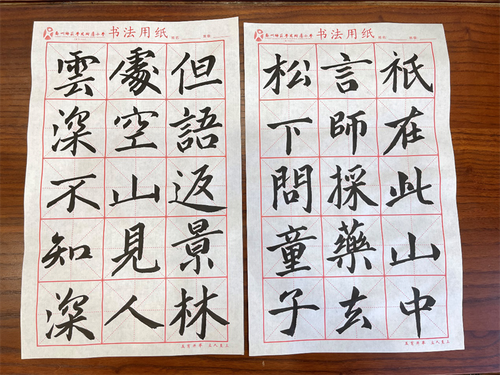 书法用纸
松下問童子
言師採藥去
祇在此山中
书法用纸
雲深不知深
處空山見人
但語返景林